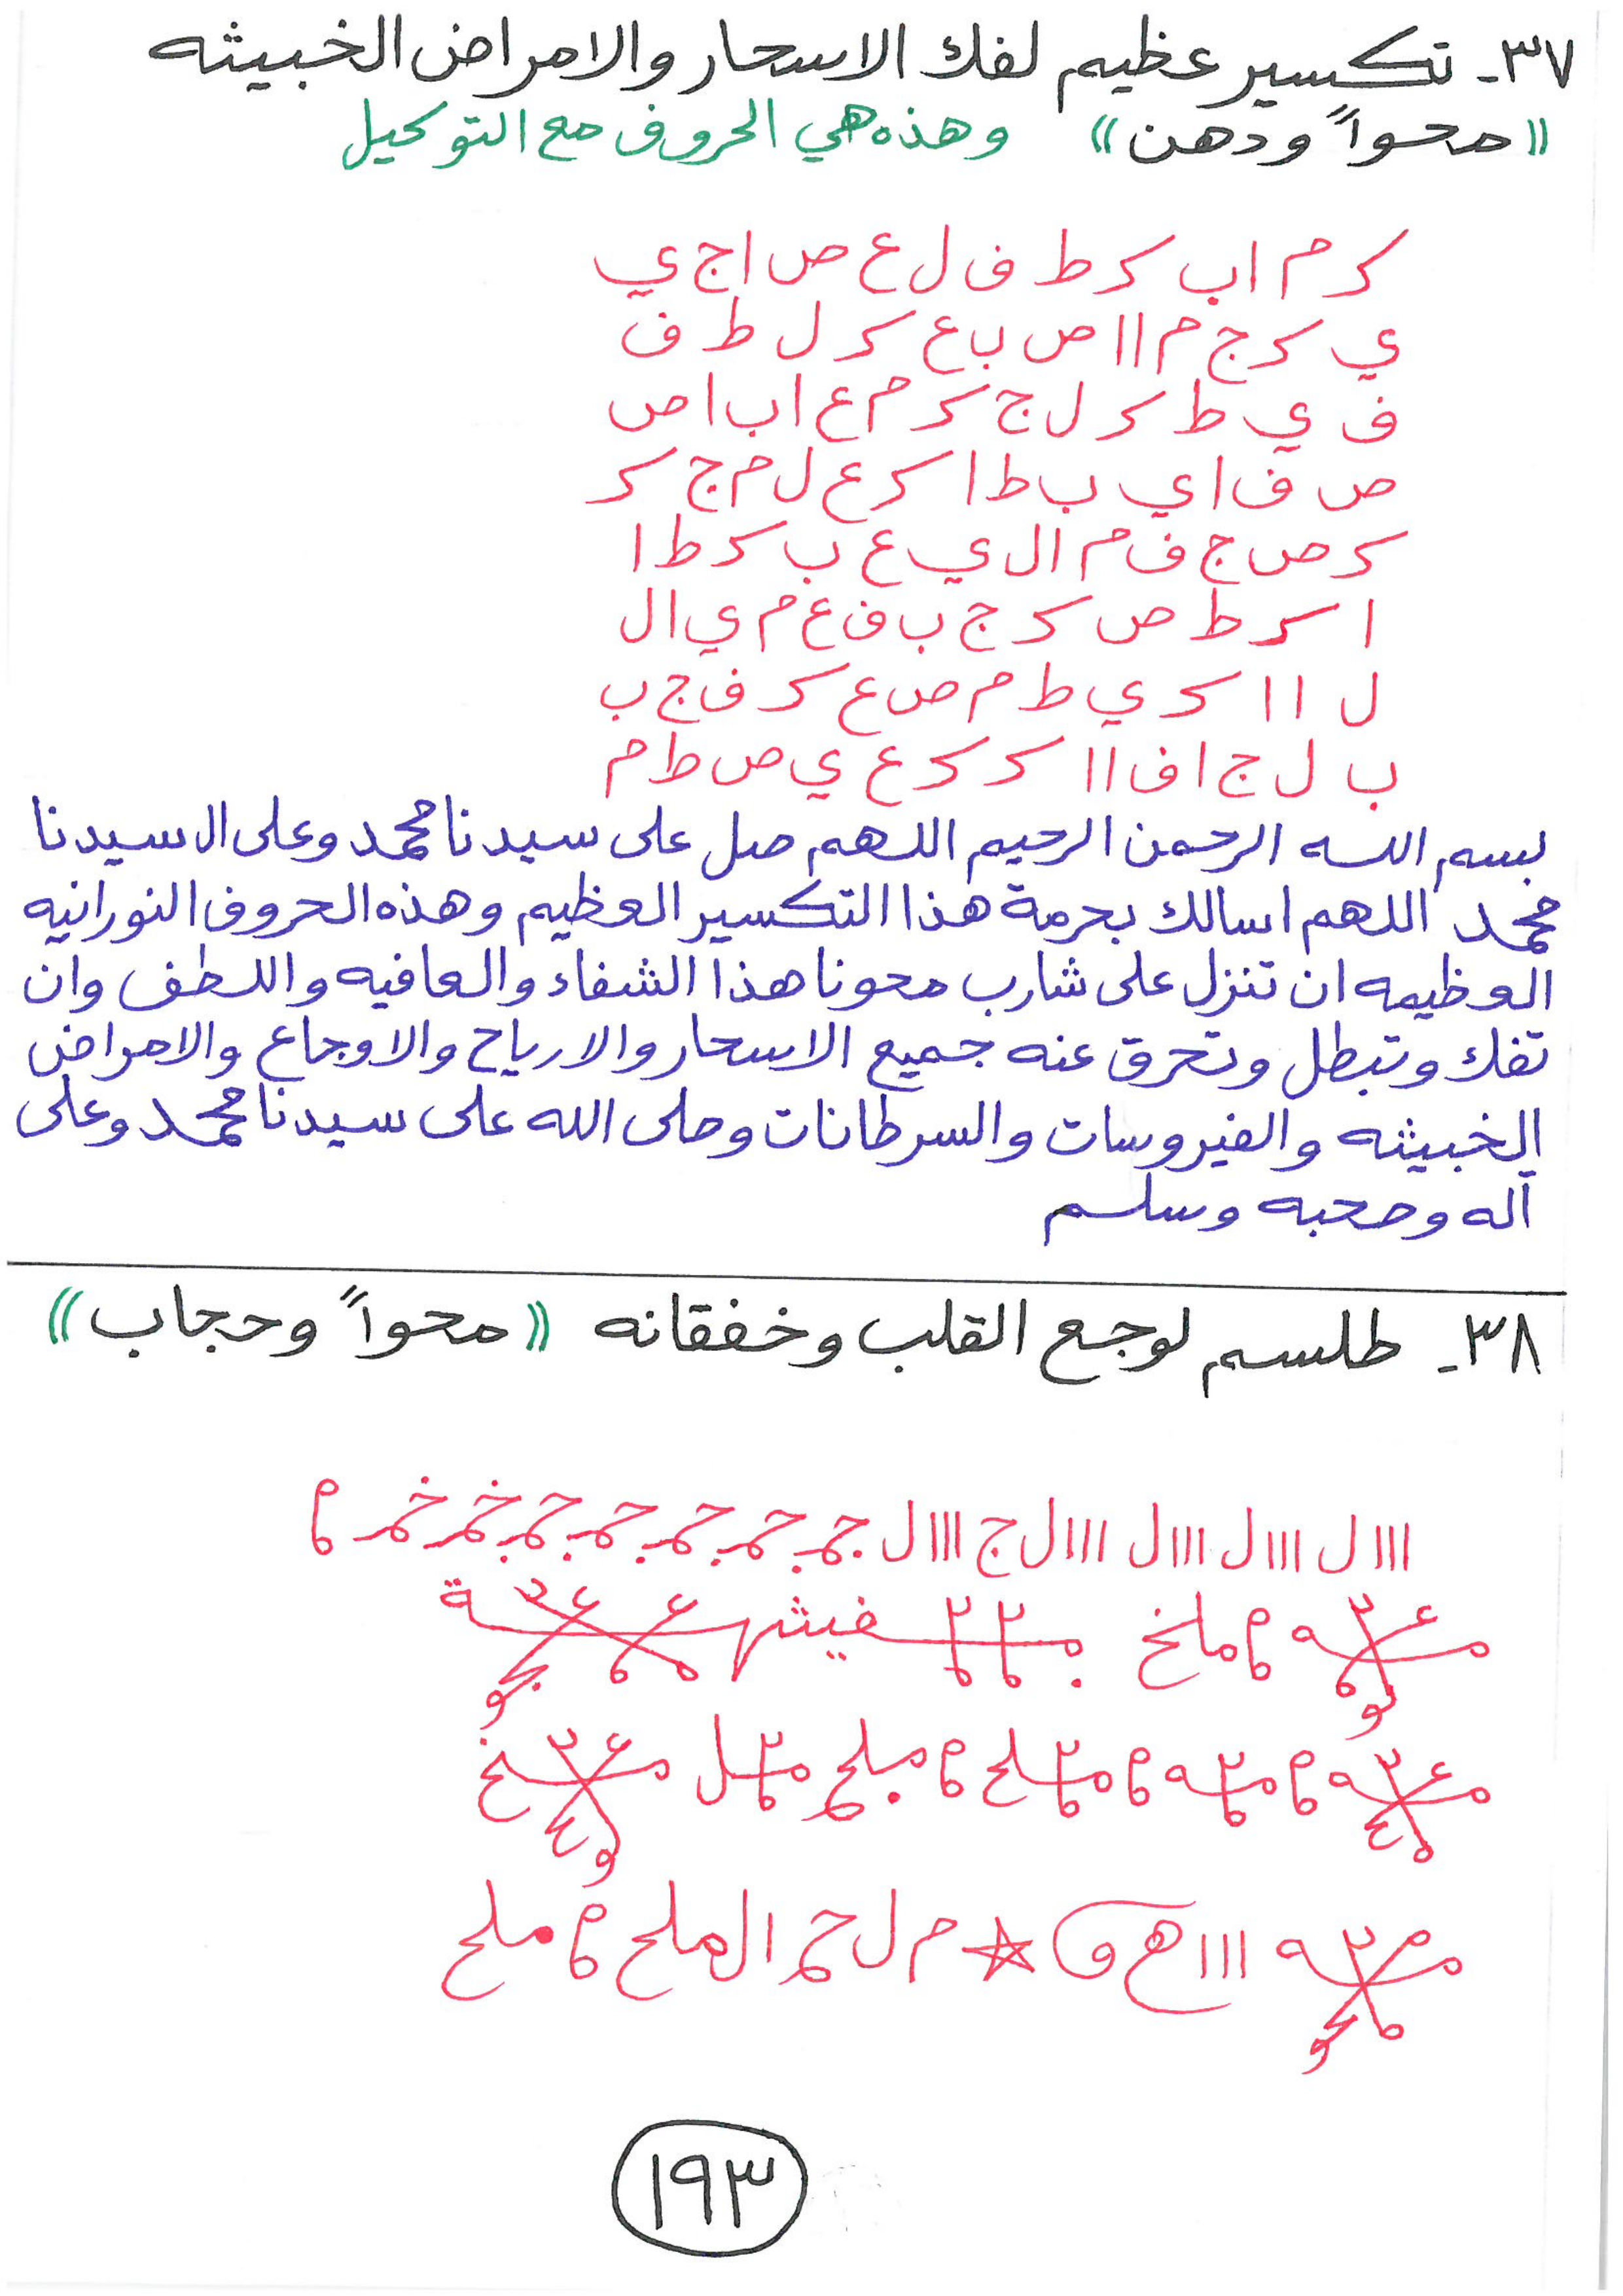 ٣٧- تكسير عظيم لفك الاسحار والامراض الخبيثه
((محواً ودهن)) وهذه هي الحروف مع التوكيل
ك م ا ب ك ط ف ل ع ص ا ج ي
ي ك ج م ا ا ص ب ع ك ل ط ف
ف ي ط ك ل ج ك م ع ا ب ا ص
ص ف ا ي ب ط ا ك ع ل م ج ك
ك ص ج ف م ا ل ي ع ب ك ط ا
ا ك ط ص ك ج ب ف ع م ي ا ل
ل ا ا ك ي ط م ص ع ك ف ج ب
ب ل ج ا ف ا ا ك ك ع ي ص ط م
بسم الله الرحمن الرحيم اللهم صل على سيدنا محمد وعلى ال سيدنا
محمد اللهم اسالك بحرمة هذا التكسير العظيم وهذه الحروف النورانيه
العظيمه ان تنزل على شارب محونا هذا الشفاء والعافيه واللطف وان
تفك وتبطل وتحرق عنه جميع الاسحار والارياح والاوجاع والامراض
الخبيثه والفيروسات والسرطانات وصلى الله على سيدنا محمد وعلى
آله وصحبه وسلم
٣٨- طلسم لوجع القلب وخفقانه ((محواً وحجاب))
ااا ل ااا ل ااا ل ااا ل ج ااا ل
ملخ
ااا م ل الملح ملح
١٩٣